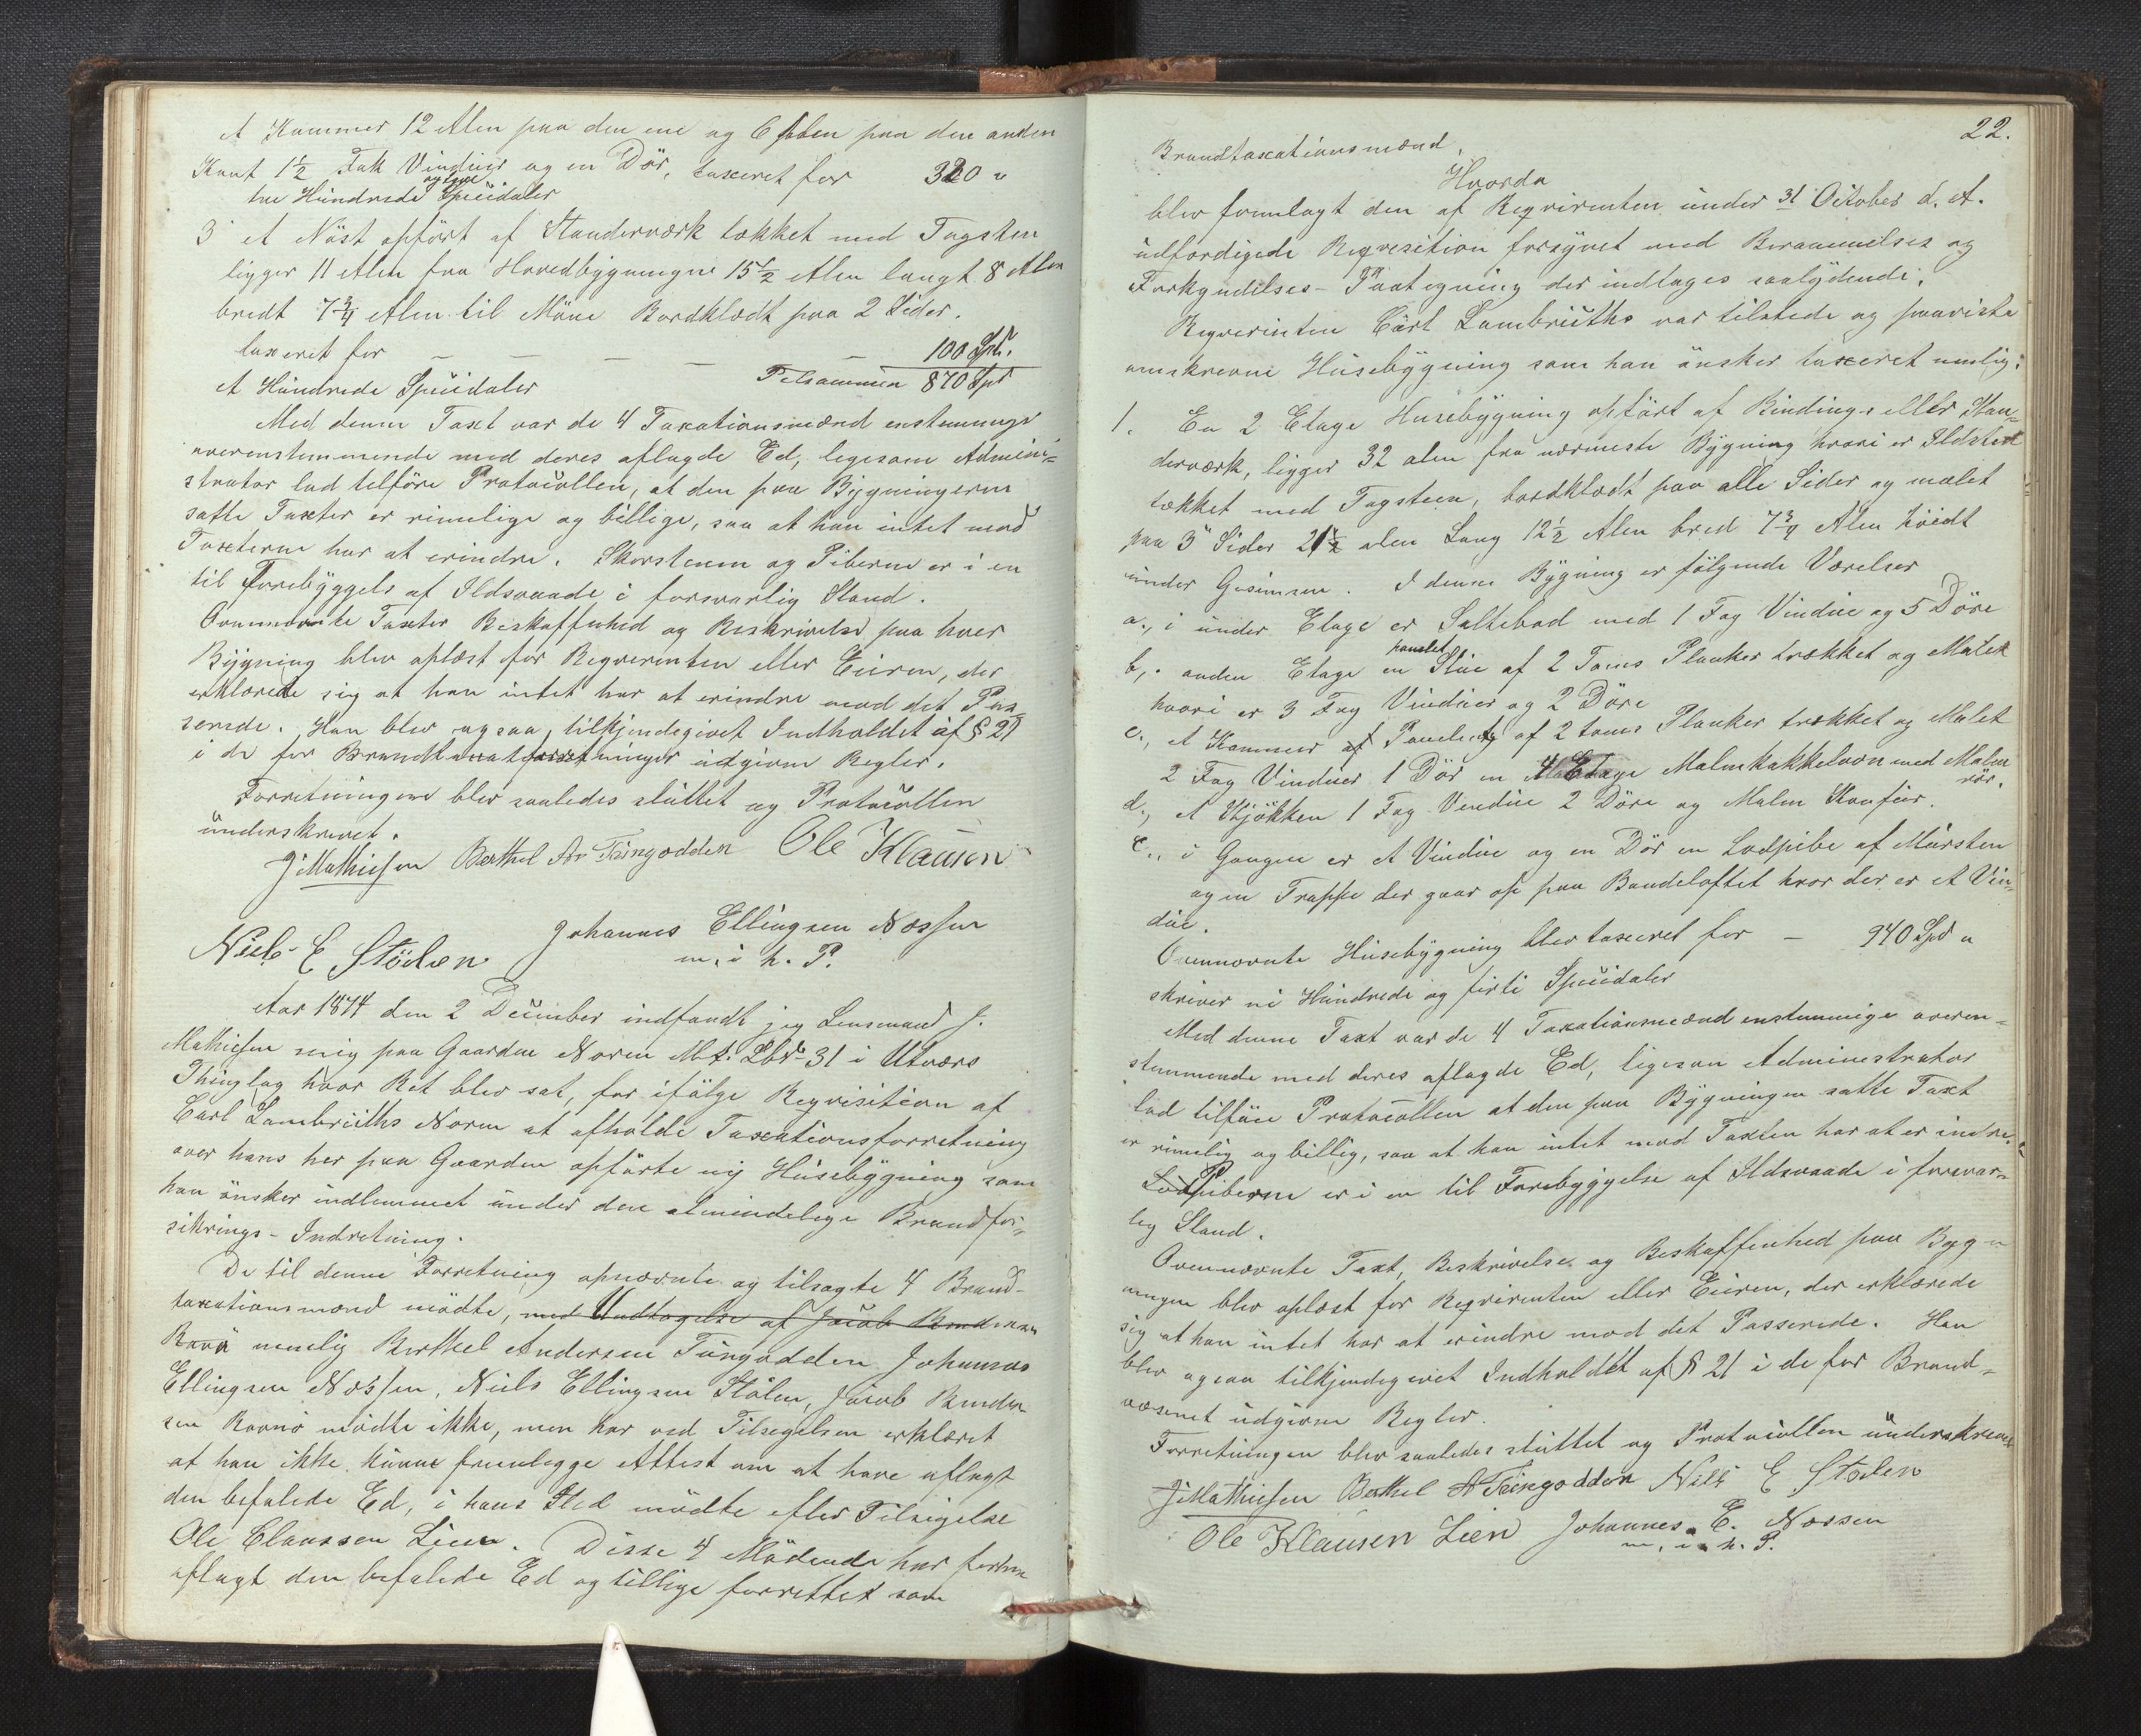 et Kammer 12 Alen paa den ene og 6 Alen paa den anden
Kant 1½ Fak Vinduer og en Dör, taxeret for 320 "
tre Hundrede og tyve Speciedaler
3 et Nöst opfört af Standerværk tækket med Tagsten
ligger 11 Alen fra Hovedbygningene 15½ Alen langt 8 Alen
bredt 7¾ Alen til Möne Bordklædt paa 2 Sider.
taxeret for – – – – – 100 Spd.
et Hundrede Speciedaler Tilsammen 870 Spd
Med denne Taxt var de 4 Taxationsmænd enstemmige
overenstemmende med deres aflagde Ed, legesom Admini=
strator lod telföre Protocollen, at den paa Bygningerne
satte Taxter er rimelige og billige, saa at han intet mod
Taxterne har at erindre. Skorstenen og Piberne er i en
til Forebyggels af Ildsvaade i forsvarlig Stand.
Ovennævnte Taxter Beskaffenhed og Beskrivelse paa hver
Bygning blev oplæst for Reqverenten eller Eieren, der
erklærede sig at han intet har at erindre mod det Pas=
serede. Han blev ogsaa tilkjendegivet Indholdet af § 21
i de for Brandtaxatforretninger udgivne Regler.
Forretningene blev saaledes sluttet og Protocollen
underskrevet.
J Mathiesen Berthel An Tungodden Ole Klausen
Johannes Ellingsen Nossen
Niels E Stölen m. i h. P.
Aar 1874 den 2 December indfandt jeg Lensmand J.
Mathiesen mig paa Gaarden Noren Mt. Lbr 31 i Utværs
Thinglag hvor Ret blev sat, for ifölge Reqvisition af
Carl Lambrüths Noren at afholde Taxationsforretning
over hans her paa Gaarden opförte ny Husebygning som
han önsker indlemmet under den almindelige Brandfor=
sikrings-Indretning.
De til denne Forretning opnævnte og tilsagte 4 Brand-
taxationsmænd mödte, med Undtagelse af Jacob Bendixen
Ravn nemlig Berthel Andersen Tungodden Johannes
Ellingsen Nossen, Niels Ellingsen Stölen, Jacob Bendix
sen Ravnö mödte ikke, men har ved Tilsegelsen erklæret
at han ikke kunne fremlegge Attest om at have aflagt
den befalede Ed, i hans Sted mödte efter Tilsigelse
Ole Claussen Leen. Disse 4 Mödende har forhen
aflagt den befalede Ed og tillige forrettet som
22.
Brandtaxationsmænd.
Hvorda
blev fremlagt den af Reqvirenten under 31 October d. A.
udfærdigede Reqvesition forsynet med Berammelses og
Forkyndelses-Paategning der indtages saalydende:
Reqverinten Carl Lambrüths var tilstede og paaviste
omskrevne Husebygning som han önsker taxeret nemlig:
1. En 2 Etage Husebygning opfört af Bindings eller Stan=
derværk, ligger 32 alen fra nærmeste Bygning hvori er Ildsted
tækket med Tagsteen, bordklædt paa alle Sider og malet
paa 3 Sider 21½ alen Lang 12½ Alen bred 7¾ Alen höidt
under Gesimsen. I denne Bygning er fölgende Værelser
a., i under Etage er Saltebod med 1 Fag Vindue og 5 Döre
b., anden Etage en panelet Stue af 2 Toms Planker trækket og Malet
hvori er 3 Fag Vinduer og 2 Döre
c., et Kammer af Panelet af 2 toms Planker trækket og Malet
2 Fag Vinduer 1 Dör en 4 Etage Malmkakkelovn med Malm
rör.
d., et Kjökken 1 Fag Vindue 2 Döre og Malm Komfur.
e., i Gangen er et Vindue og en Dör en Lodpibe af Mursten
og en Trappe der gaar op paa Bandeloftet hvor der er et Vin=
due.
Ovennævnte Husebygning blev taxeret for – 940 Spd "
skriver ni Hundrede og firti Speciedaler
Med denne Taxt var de 4 Taxationsmænd enstemmige overen=
stemmende med deres aflagde Ed, ligesom Administrator
lod tilföre Protocollen at den paa Bygningen satte Taxt
er rimelig og billig, saa at han intet mod Taxten har at erindre.
Lodpiberne er i en til Forebyggelse af Ildsvaade i forsvar=
lig Stand.
Ovennævnte Taxt, Beskrivelse og Beskaffenhed paa Byg=
ningen blev oplæst for Reqvirenten eller Eieren, der erklærede
sig at han intet har at erindre mod det Passerede. Han
blev ogsaa tilkjendegivet Indholdet af § 21 i de for Brand=
væsenet udgivne Regler.
Forretningen blev saaledes sluttet og Protocollen underskrevet
J Mathiesen Berthel A Tungodden Nils E Stölen
Ole Klausen Leen Johannes E. Nossen
m. i. h. P.